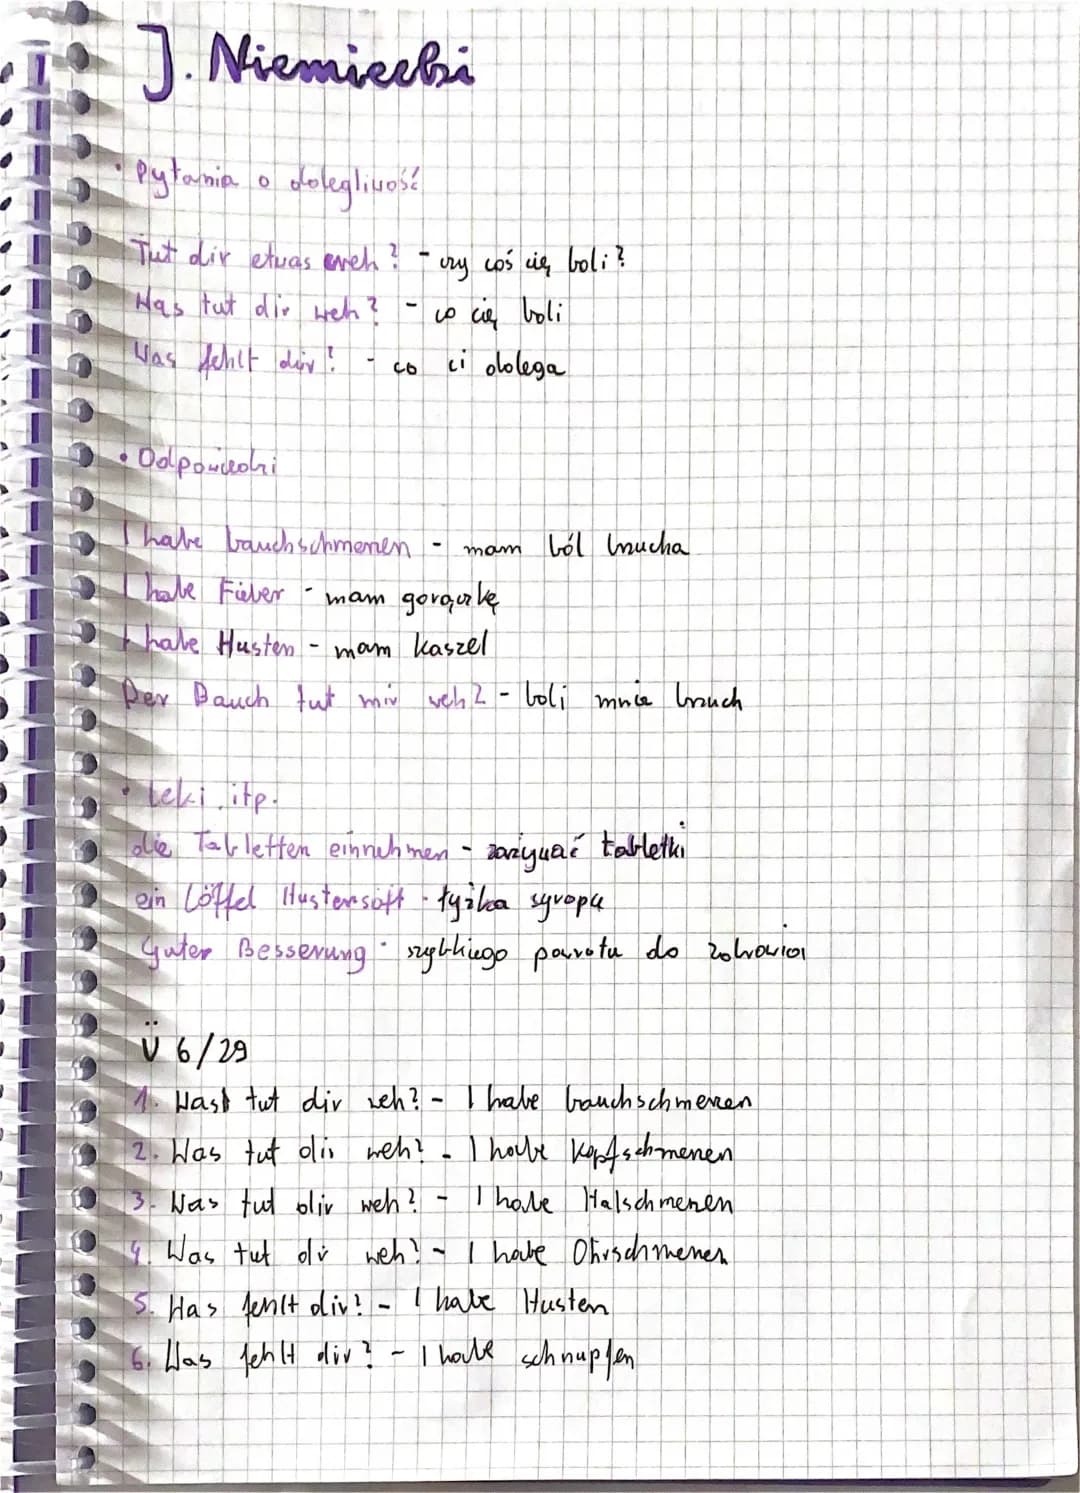 J. Niemiecki
• Pytania o dolegliwość
Tut dir etwas weh? - czy coś cię boli?
Was tut dir weh? - co cię boli
Was fehlt dir? - co ci dolega
• Odpowiedzi
I habe bauchschmerzen - mam ból brzucha
I habe Fieber - mam gorączkę
I habe Husten - mam kaszel
Der Bauch tut mir weh? - boli mnie brzuch
• leki itp.
die Tabletten einnehmen - zażywać tabletki
ein Löffel Hustensaft - łyżka syropu
Guter Besserung - szybkiego powrotu do zdrowia
Ü 6/29
1. Wast tut dir weh? - I habe bauchschmerzen
2. Was tut dir weh? - I habe Kopfschmerzen
3. Was tut dir weh? - I habe Halschmerzen
4. Was tut dir weh? - I habe Ohrschmerzen
5. Was fehlt dir? - I habe Husten
6. Was fehlt dir? - I habe schnupfen